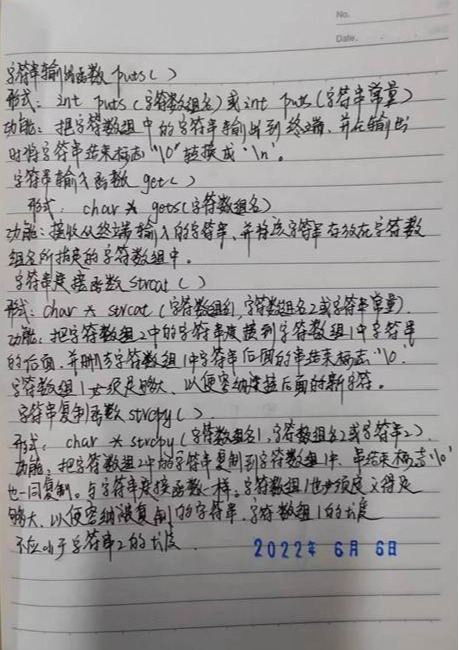 No.
Date.
字符串输出函数 puts( )
形式: int puts(字符数组名)或int puts(字符串常量)
功能: 把字符数组中的字符串输出到终端,并在输出
时将字符串结束标志'\0'转换成'\n'。
字符串输入函数 get( )
形式: char * gets(字符数组名)
功能:接收从终端输入的字符串,并将该字符串存放在字符数
组名所指定的字符数组中。
字符串连接函数strcat( )
形式: char * strcat (字符数组名1,字符数组名2或字符串常量).
功能: 把字符数组2中的字符串连接到字符数组1中字符串
的后面,并删去字符数组1中字符串后面的串结束标志'\0'.
字符数组1必须足够大,以便容纳连接后面的新字符。
字符串复制函数strcpy( ).
形式: char * strcpy(字符数组名1,字符数组名2或字符串2).
功能: 把字符数组2中的字符串复制到字符数组1中,串结束标志'\0'
也一同复制。与字符串连接函数一样,字符数组1也必须定义得足
够大,以便容纳被复制的字符串.字符数组1的长度
不应小于字符串2的长度.
2022年 6月 6日